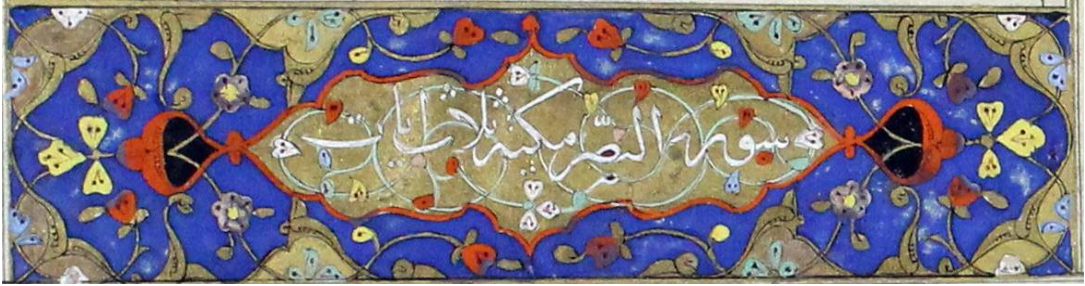 سورة النصر مكية ثلاث آيات